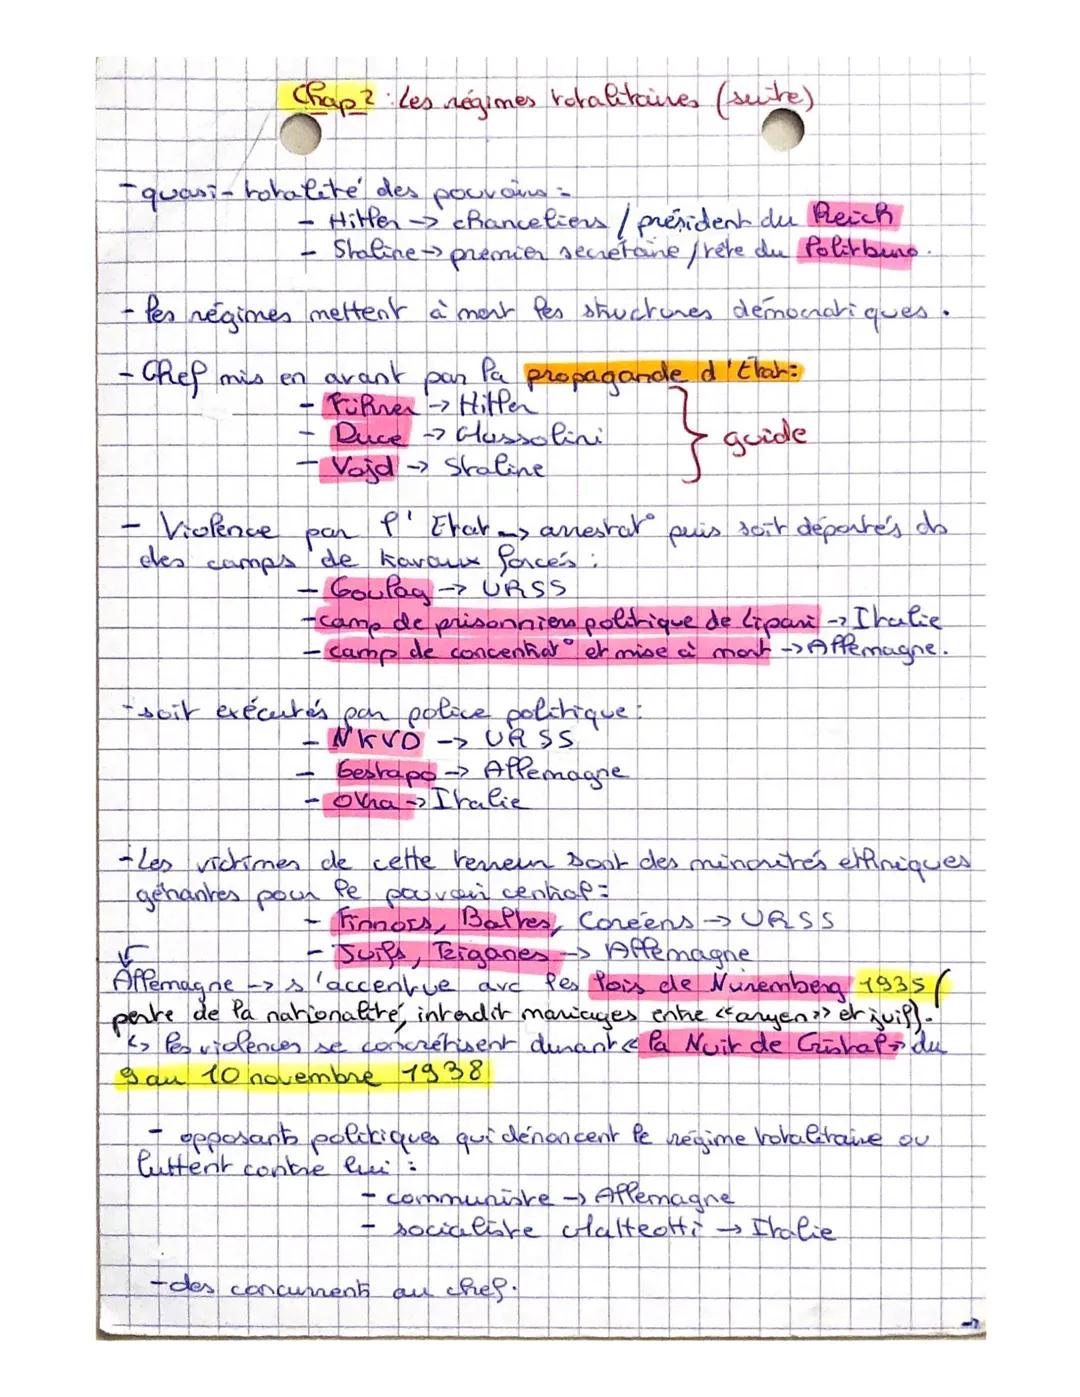 Chap 2 : Les régimes totalitaires (suite)
- quasi-totalité des pouvoirs :
- Hitler -> chanceliers / président du Reich
- Staline -> premier secrétaire / tête du Politburo.
- les régimes mettent à mort les structures démocratiques.
- Chef mis en avant par la propagande d'Etat :
- Führer -> Hitler
- Duce -> Mussolini } guide
- Vojd -> Staline
- Violence par l'Etat -> arrestat° puis soit déportés ds
des camps de travaux forcés :
- Goulag -> URSS
- camp de prisonniers politique de Lipari -> Italie
- camp de concentrat° et mise à mort -> Allemagne.
- soit exécutés par police politique :
- NKVD -> URSS
- Gestapo -> Allemagne
- Ovra -> Italie
- Les victimes de cette terreur sont des minorités ethniques
gênantes pour le pouvoir central :
- Finnois, Baltes, Coréens -> URSS
- Juifs, Tziganes -> Allemagne
Allemagne -> s'accentue avc les lois de Nuremberg 1935 (
perte de la nationalité, interdit mariages entre «aryen» et juif).
↳ les violences se concrétisent durant « la Nuit de Cristal » du
9 au 10 novembre 1938
- opposants politiques qui dénoncent le régime totalitaire ou
luttent contre lui :
- communiste -> Allemagne
- socialiste Matteotti -> Italie
- des concurrents au chef.
->